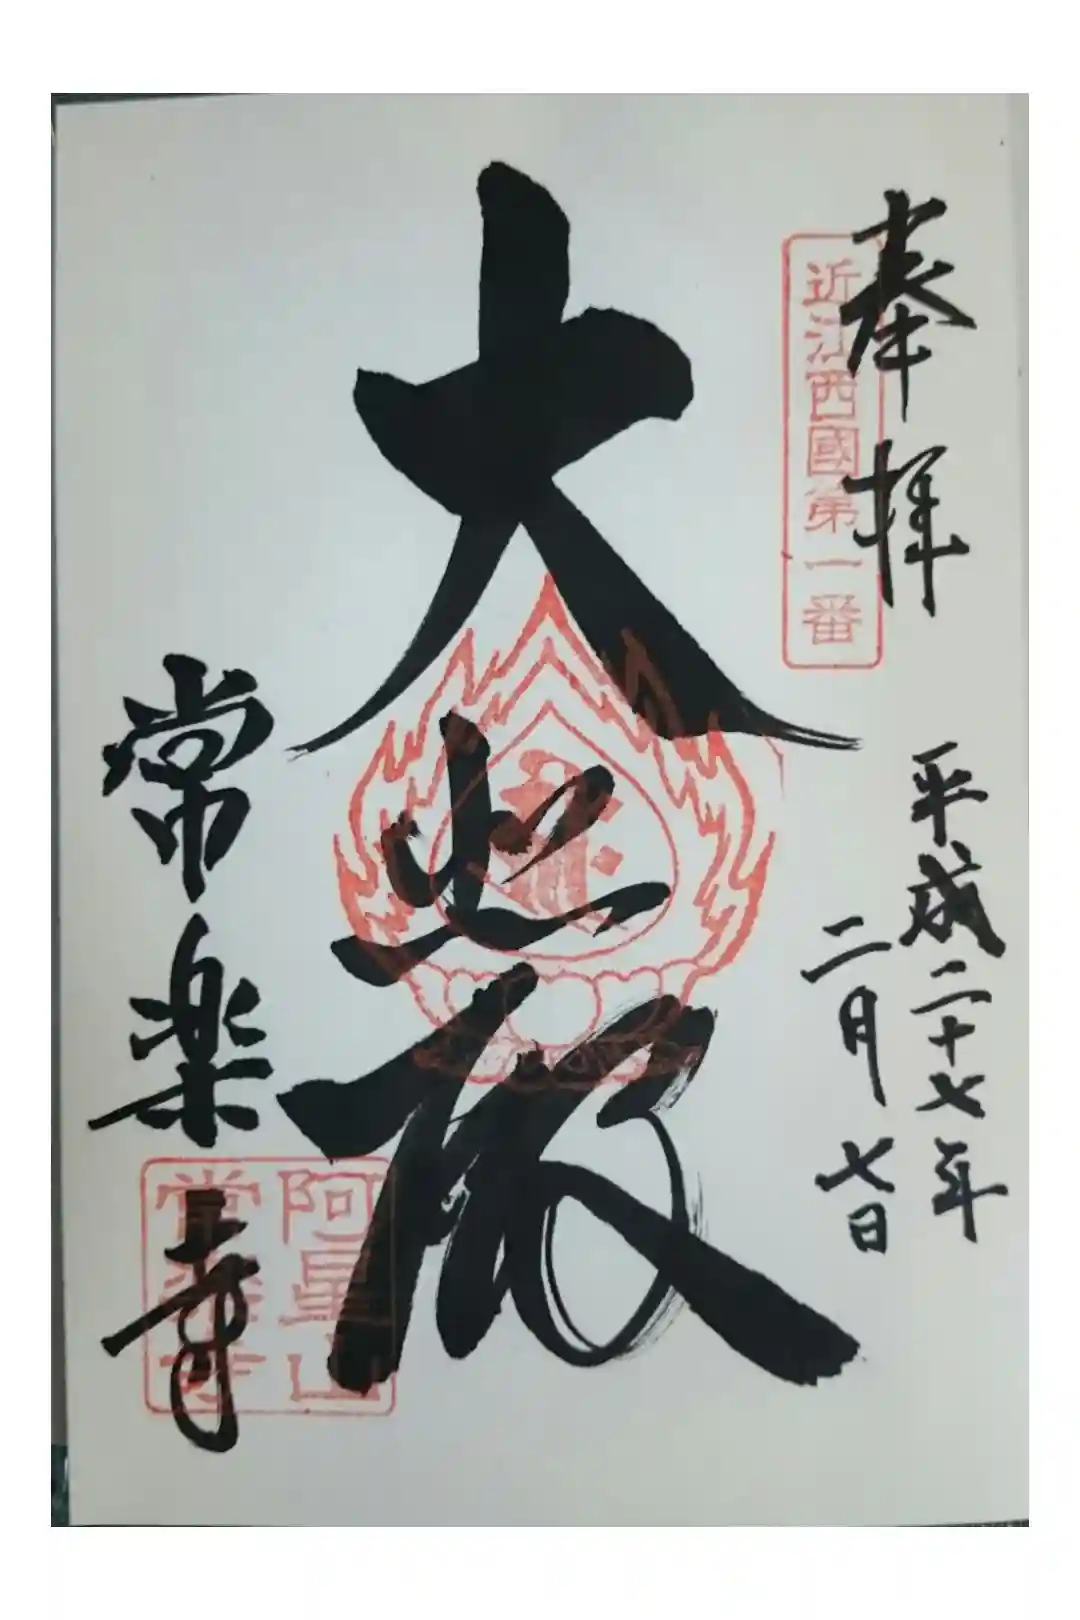 奉拝
近江西國第一番
平成二十七年
二月七日
大悲殿
常楽寺
阿星山
常楽寺